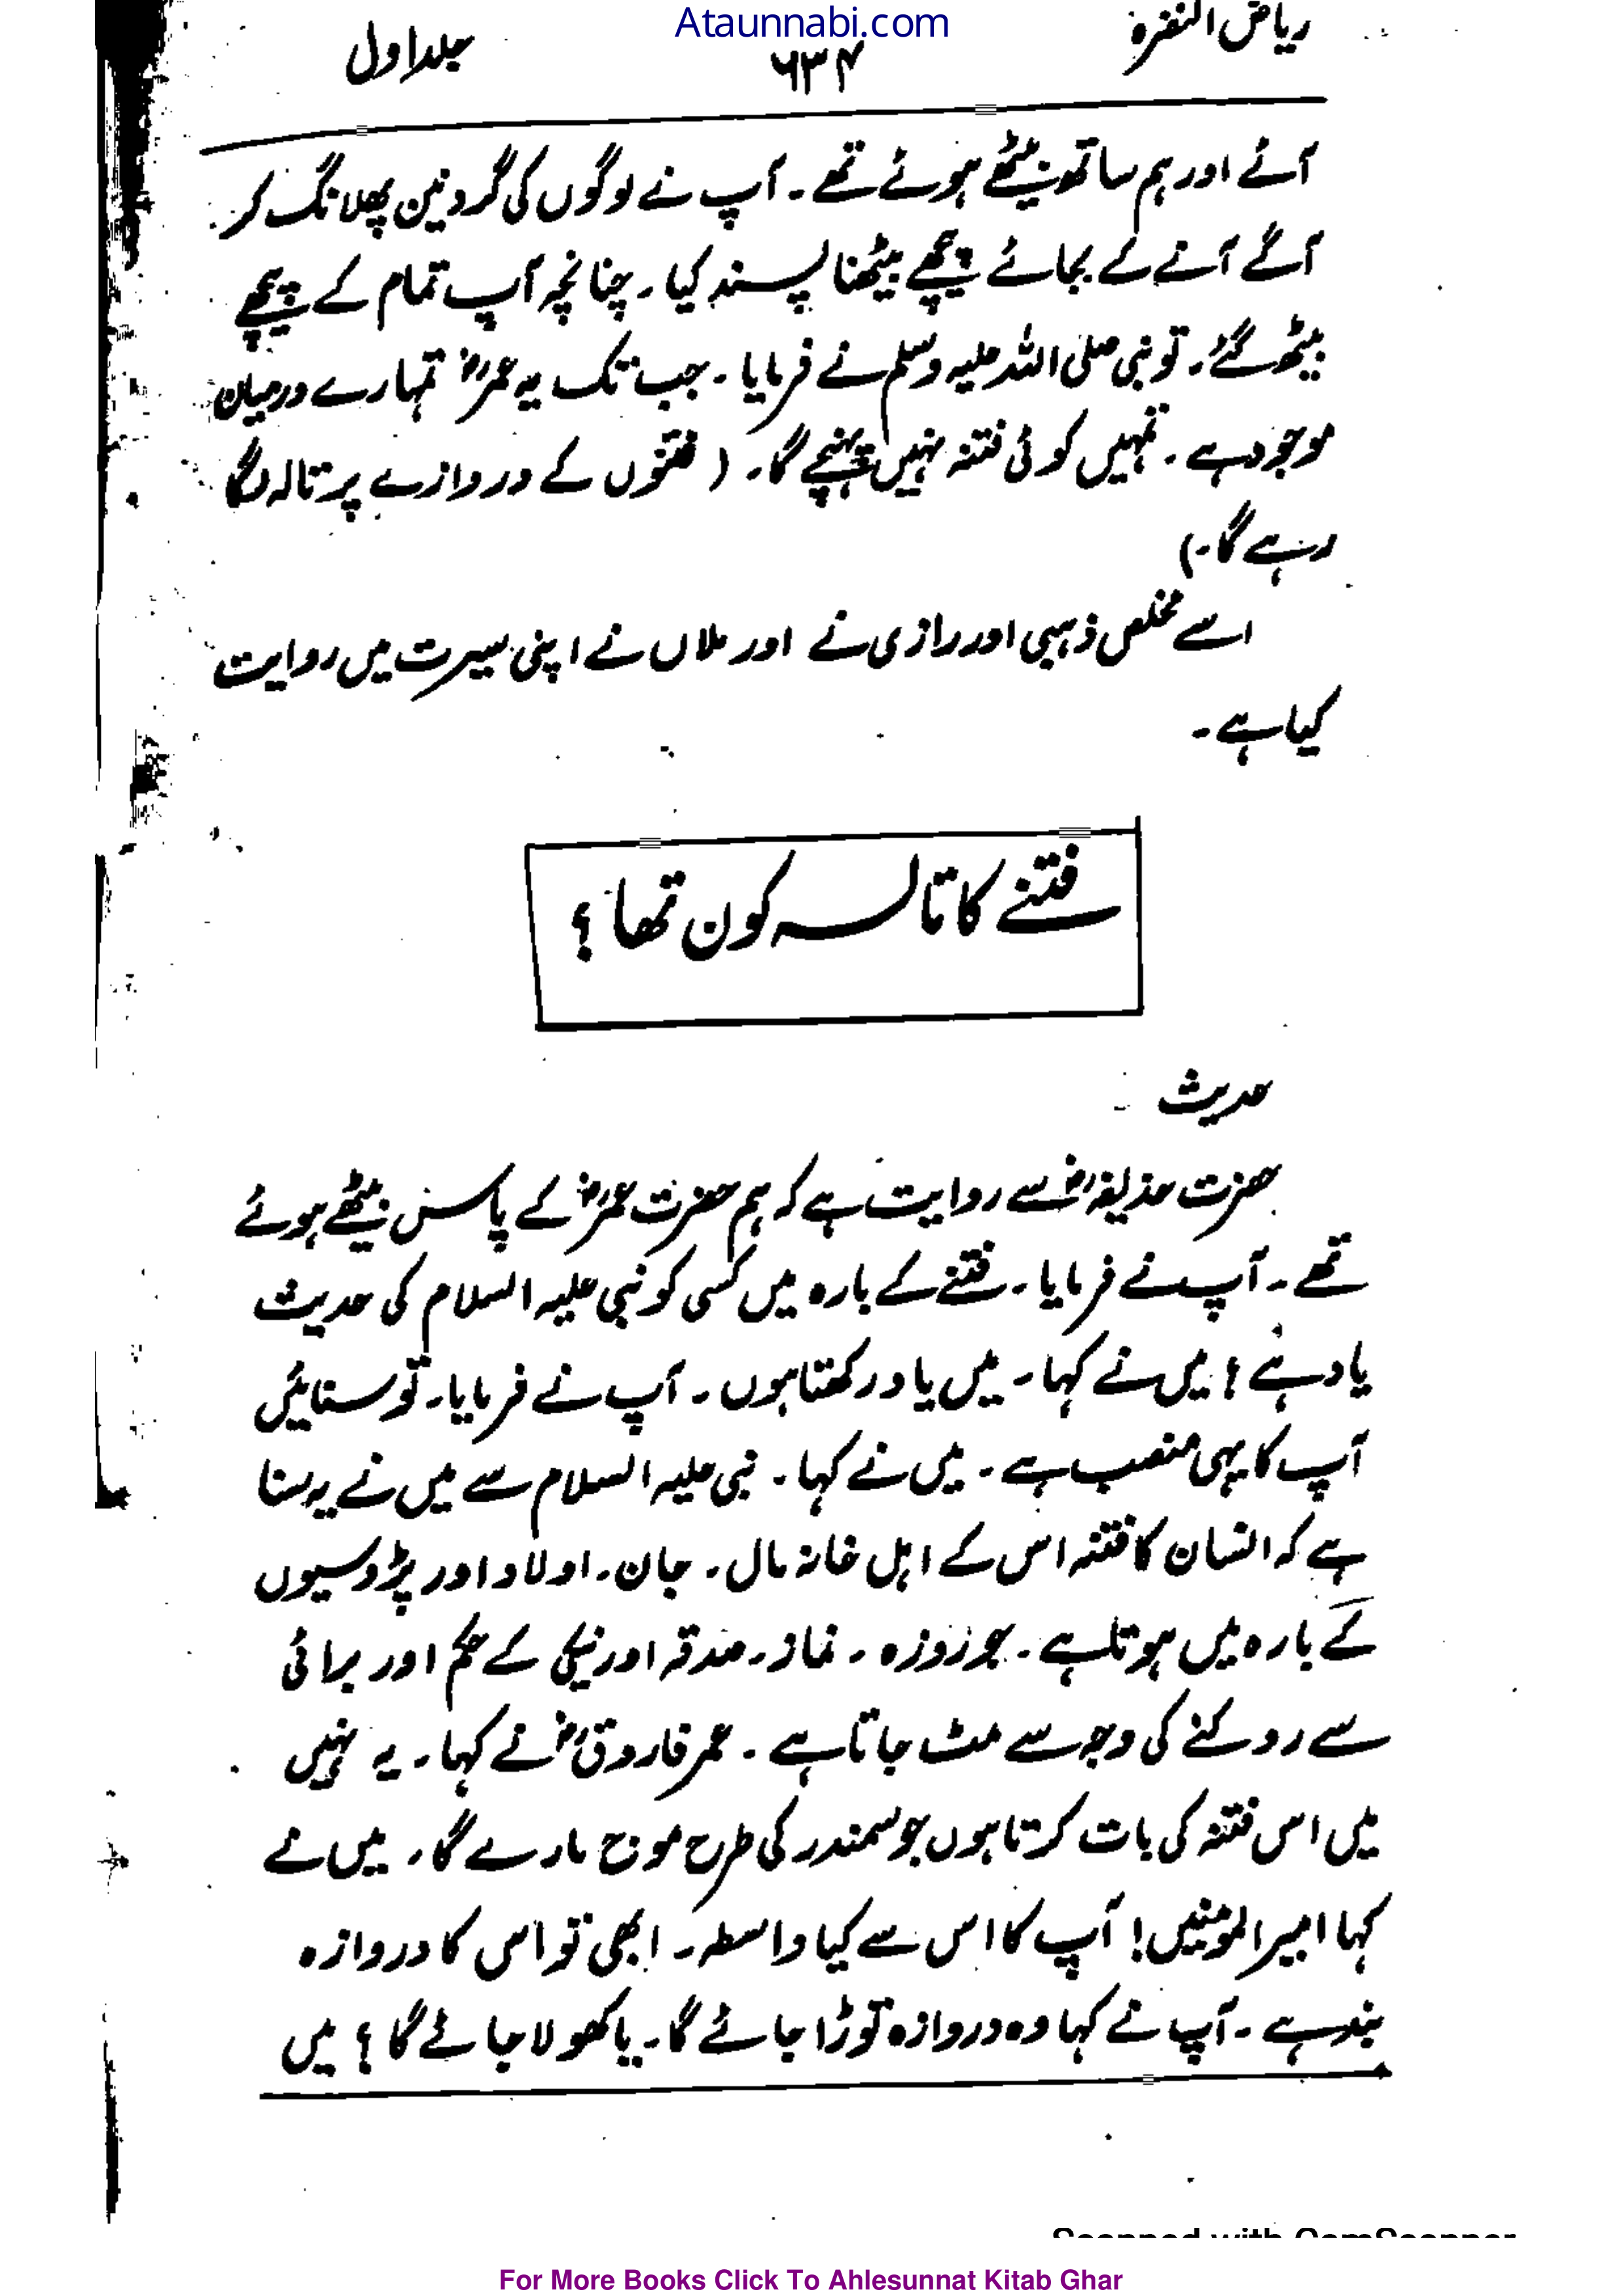 Ataunnabi.com
ریاض النضرہ ۶۳۴ جلد اول
آئے اور ہم ساتھ بیٹھے ہوئے تھے ۔ آپ نے لوگوں کی گردنیں پھلانگ کر
آگے آنے کے بجائے پیچھے بیٹھنا پسند کیا ۔ چنانچہ آپ تمام کے پیچھے
بیٹھ گئے ۔ تو نبی صلی اللہ علیہ وسلم نے فرمایا ۔ جب تک یہ عمرؓ تمہارے درمیان
موجود ہے ۔ تمہیں کوئی فتنہ نہیں پہنچے گا ۔ ( فتنوں کے دروازے پر تالہ لگا
رہے گا ۔)
اسے مخلص ذہبی اور رازی نے اور ملاں نے اپنی سیرت میں روایت
کیا ہے ۔
فتنے کا تالہ کون تھا ؟
حدیث ۔
حضرت حذیفہؓ سے روایت ہے کہ ہم حضرت عمرؓ کے پاس بیٹھے ہوئے
تھے ۔ آپ نے فرمایا ۔ فتنے کے بارہ میں کسی کو نبی علیہ السلام کی حدیث
یاد ہے ؟ میں نے کہا ۔ میں یاد رکھتا ہوں ۔ آپ نے فرمایا ۔ تو سنائیں
آپ کا یہی منصب ہے ۔ میں نے کہا ۔ نبی علیہ السلام سے میں نے یہ سنا
ہے کہ انسان کا فتنہ اس کے اہل خانہ مال ۔ جان ۔ اولاد اور پڑوسیوں
کے بارہ میں ہوتا ہے ۔ جو روزہ ۔ نماز ۔ صدقہ اور نیکی کے حکم اور برائی
سے روکنے کی وجہ سے مٹ جاتا ہے ۔ عمر فاروقؓ نے کہا ۔ یہ نہیں
میں اس فتنہ کی بات کرتا ہوں جو سمندر کی طرح موج مارے گا ۔ میں نے
کہا امیر المومنیں ! آپ کا اس سے کیا واسطہ ۔ ابھی تو اس کا دروازہ
بند ہے ۔ آپ نے کہا وہ دروازہ توڑا جائے گا ۔ یا کھولا جائے گا ؟ میں
Scanned with CamScanner
For More Books Click To Ahlesunnat Kitab Ghar